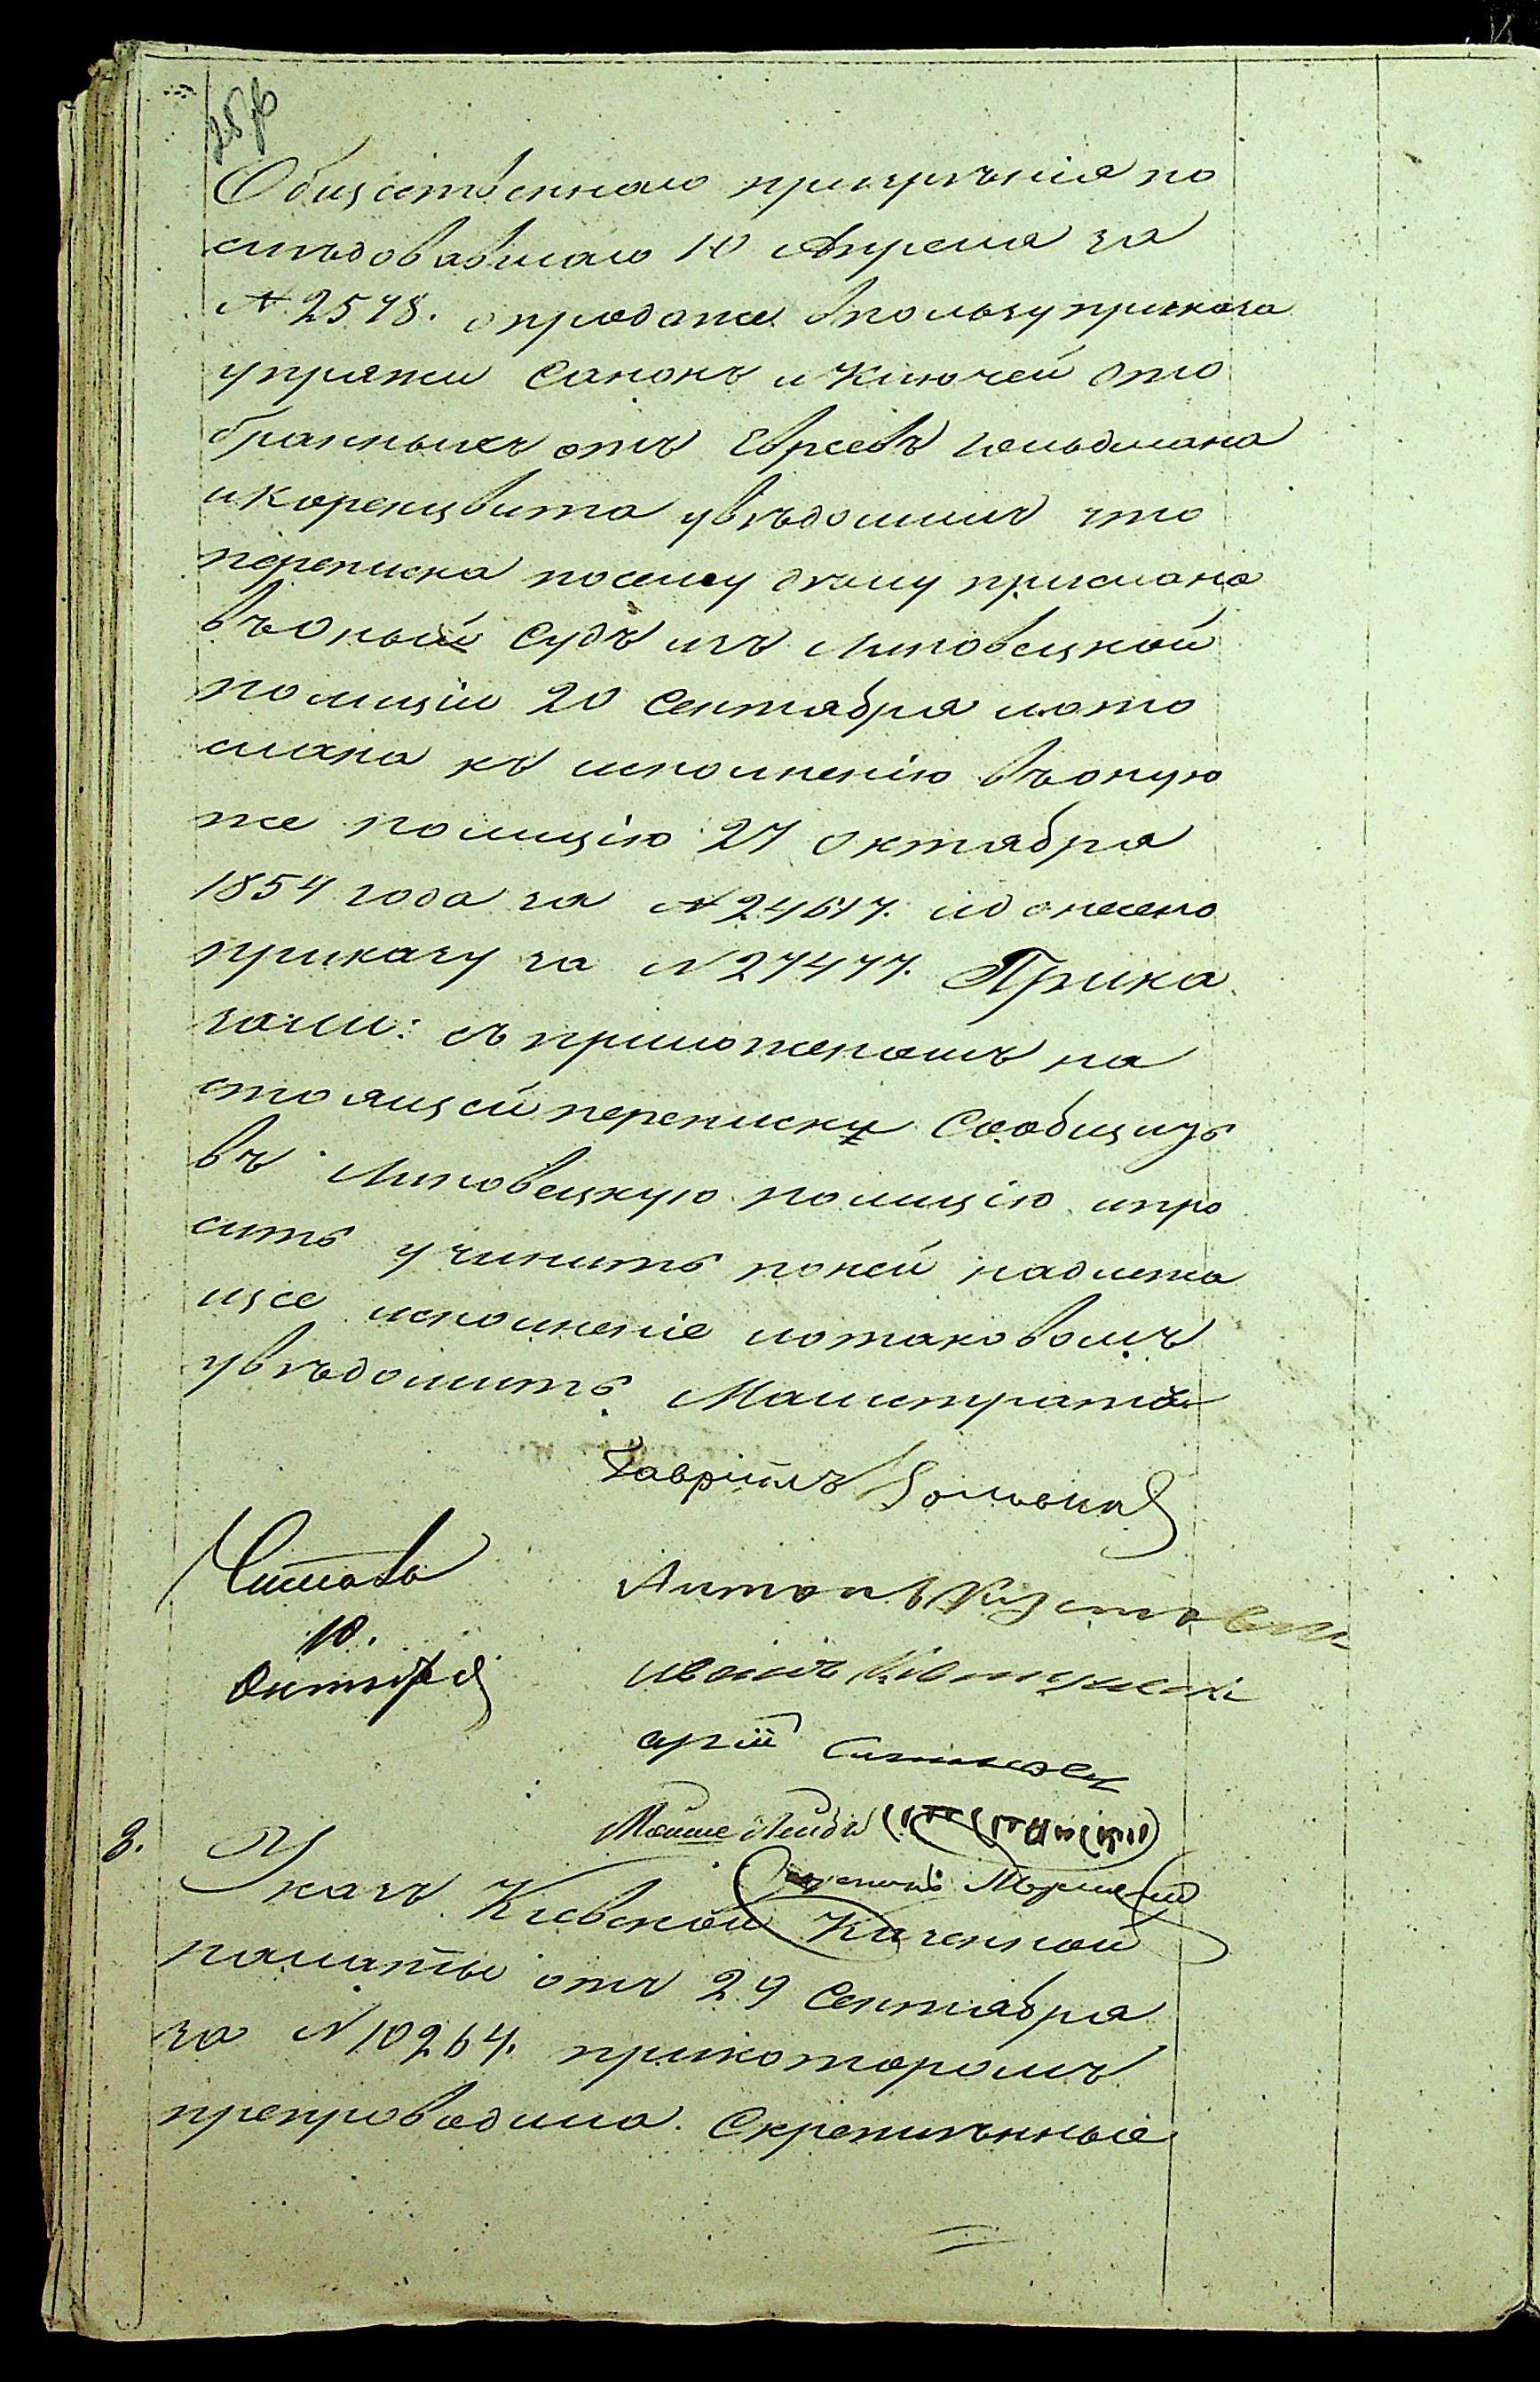 Общественнаго призрѣнія по
слѣдовавшаго 10 Апреля за
№ 2578. опродаже впользу приказа
упряжи Санокъ и Ключей ото
бранныхъ отъ Евреевъ Гольдмана
и Коренцвита увѣдомилъ что
переписка посему дѣлу прислана
въоный Судъ изъ Липовецкой
полиціи 20 Сентября и ото
слана къ исполненію въоную
же полицію 27 октября
1854 года за № 24617. и донесено
приказу за № 27477. Прика
зали: съ приложенемъ на
стоящей переписки Сообщить
въ Липовецкую полицію ипро
сить учинить поней надлежа
щее исполненіе иотаковомъ
увѣдомить Магистратъ
Гавріилъ
Читалъ
Антонъ
10.
Октября
Иванъ
Мошке Лейбъ
3.
Указъ Кіевской Казенной
палаты отъ 29 Сентября
за № 10264. прикоторомъ
препроводила Скрепленные